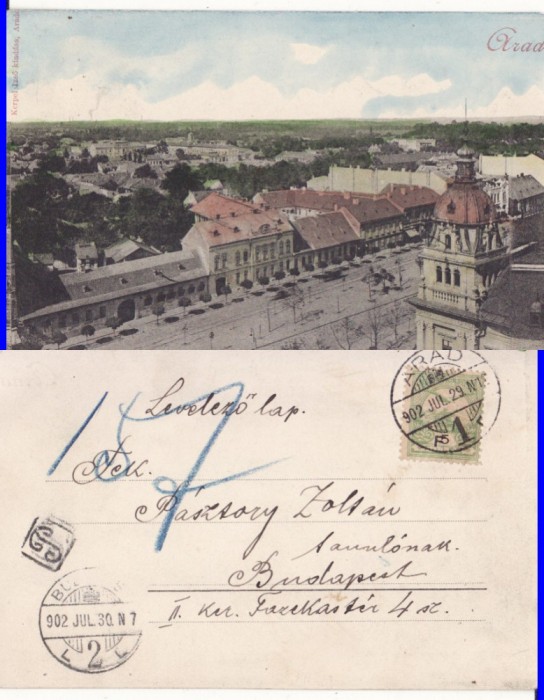 Arad
Kerpel Izsó kiadása, Arad
ARAD
902 JUL. 29. N1
F 5
1
Levelező lap.
17
Nek.
Pásztory Zoltán
tanulónak.
Budapest
II. ker. Fazekastér 4 sz.
BU
902 JUL. 30. N 7
L 2 L